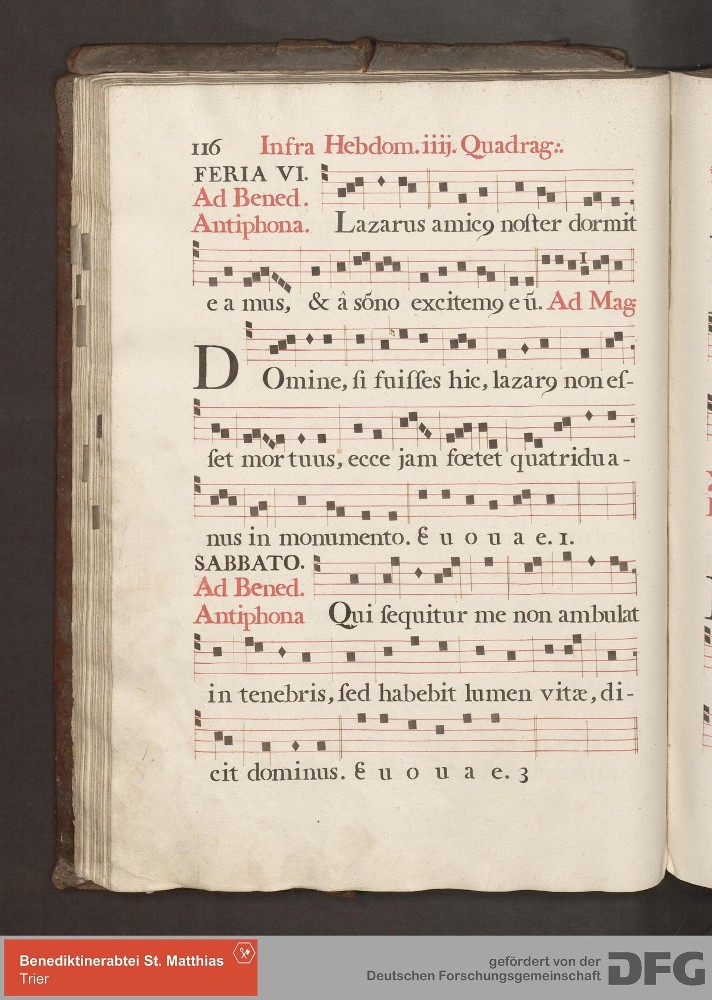 116 Infra Hebdom. iiij. Quadrag:.
FERIA VI.
Ad Bened.
Antiphona. Lazarus amicꝯ noſter dormit
e a mus, & â sõno excitemꝯ e ũ. Ad Mag:
DOmine, ſi fuiſſes hic, lazarꝯ non eſ-
ſet mor tuus, ecce jam fœtet quatridu a -
nus in monumento. & u o u a e. 1.
SABBATO.
Ad Bened.
Antiphona Qui ſequitur me non ambulat
in tenebris, ſed habebit lumen vitæ, di-
cit dominus. & u o u a e. 3
Benediktinerabtei St. Matthias
Trier
gefördert von der
Deutschen Forschungsgemeinschaft DFG